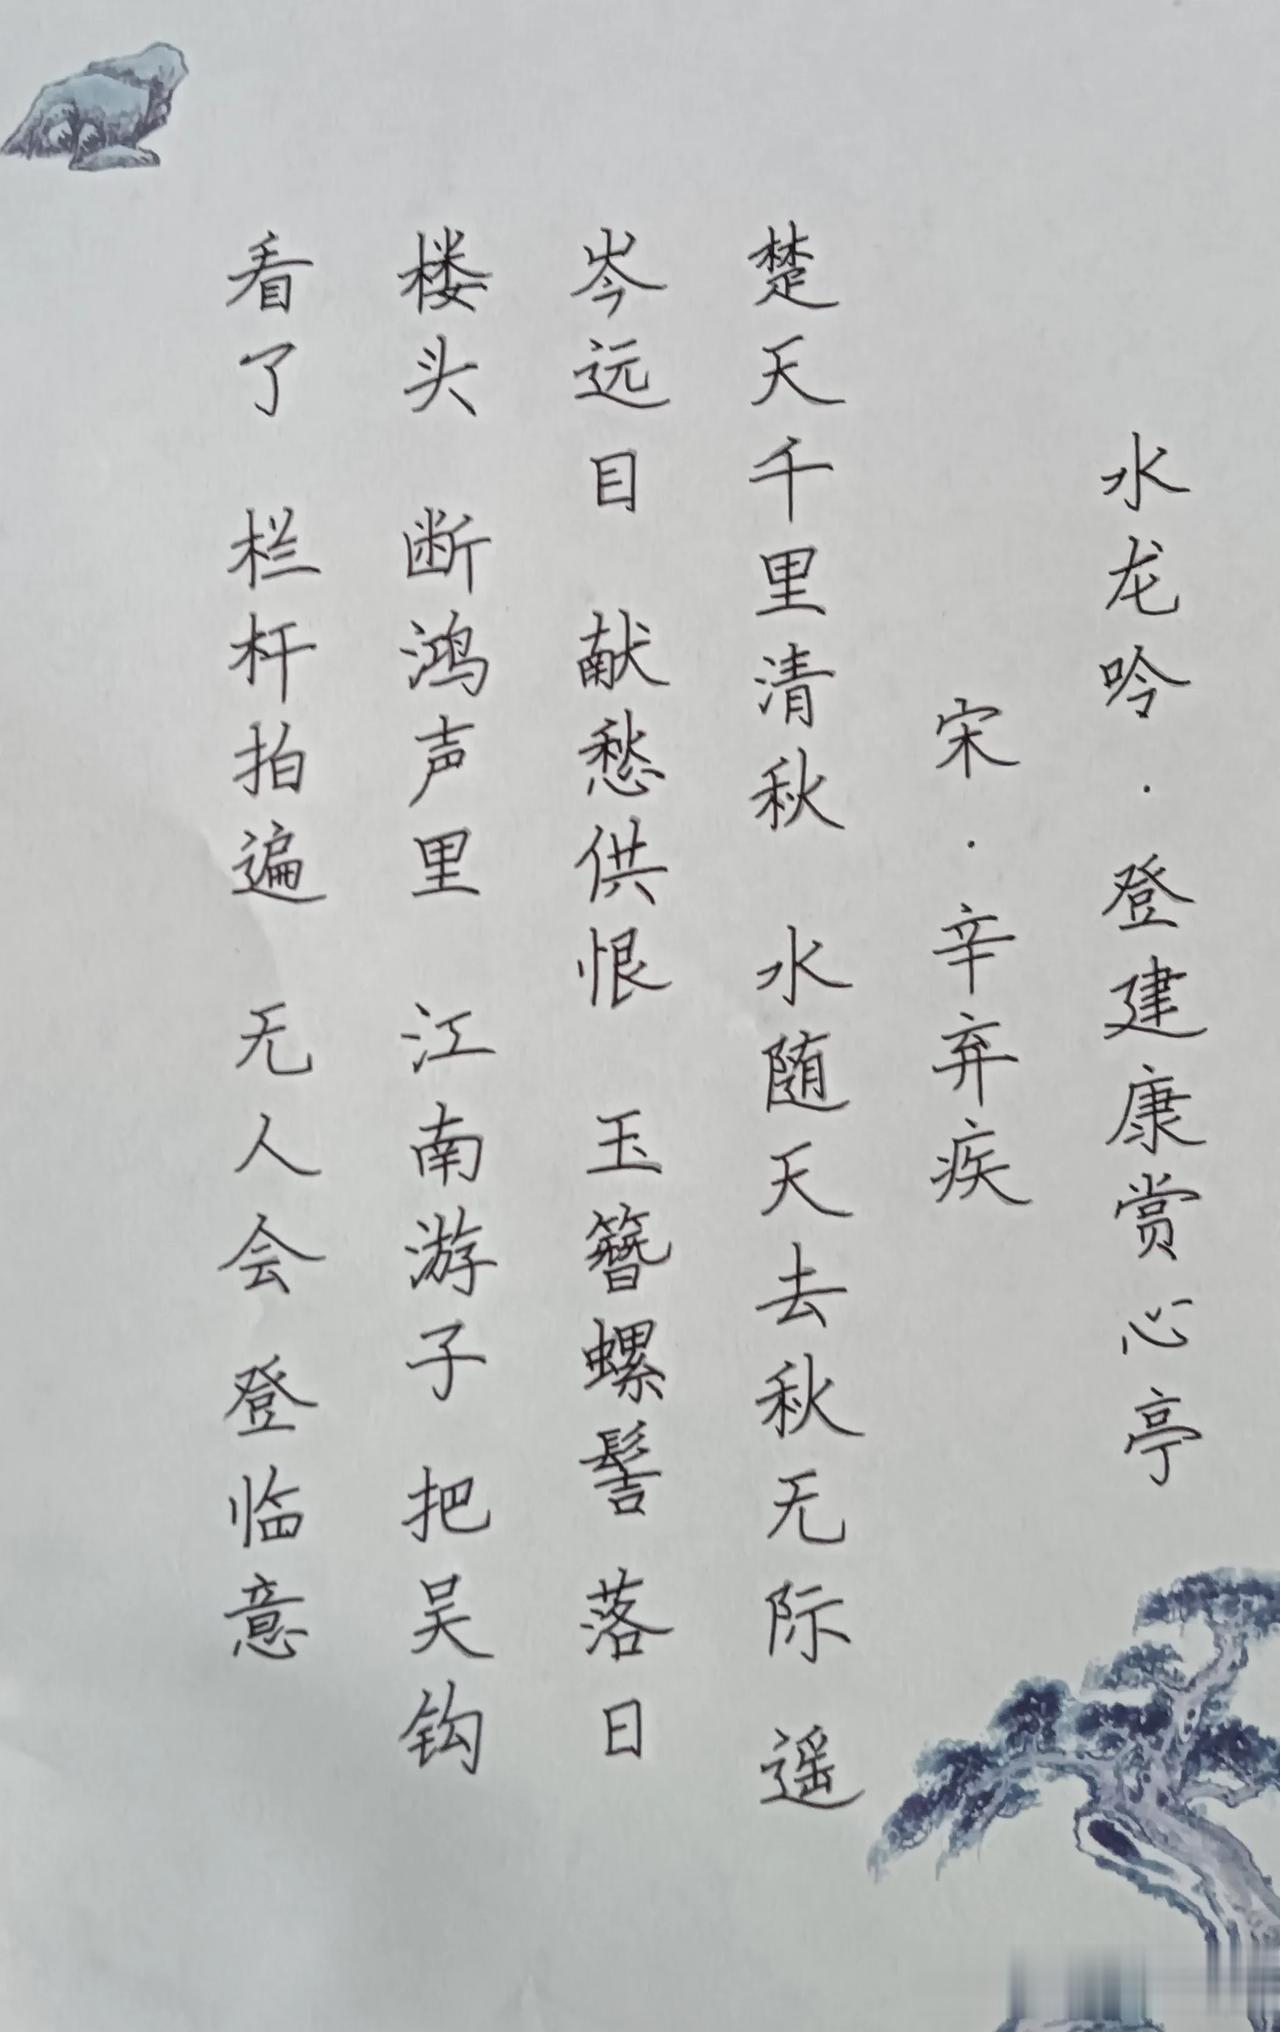 水龙吟·登建康赏心亭
宋·辛弃疾
楚天千里清秋 水随天去秋无际 遥
岑远目 献愁供恨 玉簪螺髻 落日
楼头 断鸿声里 江南游子 把吴钩
看了 栏杆拍遍 无人会 登临意